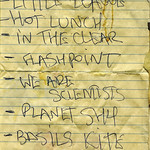 - LITTLE
HOT LUNCH
IN THE CLEAR
- FLASHPOINT
- WE ARE
SCIENTISTS
- PLANET SH4
- BASILS KITE